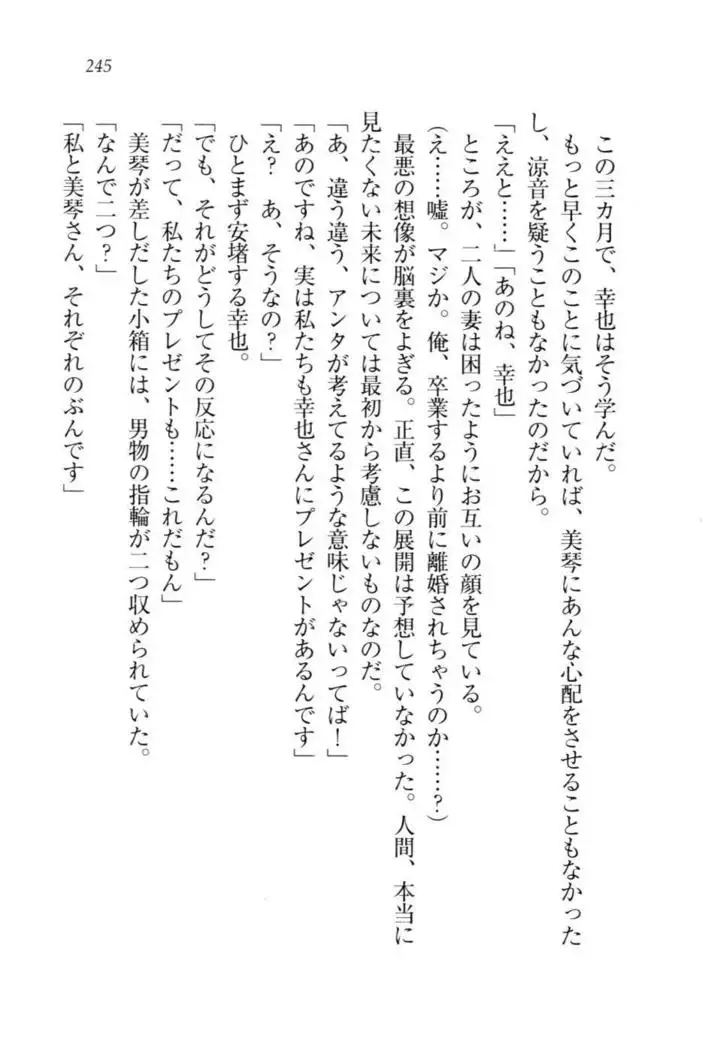 245
この三カ月で、幸也はそう学んだ。
もっと早くこのことに気づいていれば、美琴にあんな心配をさせることもなかった
し、涼音を疑うこともなかったのだから。
「ええと……」「あのね、幸也」
ところが、二人の妻は困ったようにお互いの顔を見ている。
(え……嘘。マジか。俺、卒業するより前に離婚されちゃうのか……?)
最悪の想像が脳裏をよぎる。正直、この展開は予想していなかった。人間、本当に
見たくない未来については最初から考慮しないものなのだ。
「あ、違う違う、アンタが考えてるような意味じゃないってば!」
「あのですね、実は私たちも幸也さんにプレゼントがあるんです」
「え? あ、そうなの?」
ひとまず安堵する幸也。
「でも、それがどうしてその反応になるんだ?」
「だって、私たちのプレゼントも……これだもん」
美琴が差しだした小箱には、男物の指輪が二つ収められていた。
「なんで二つ?」
「私と美琴さん、それぞれのぶんです」